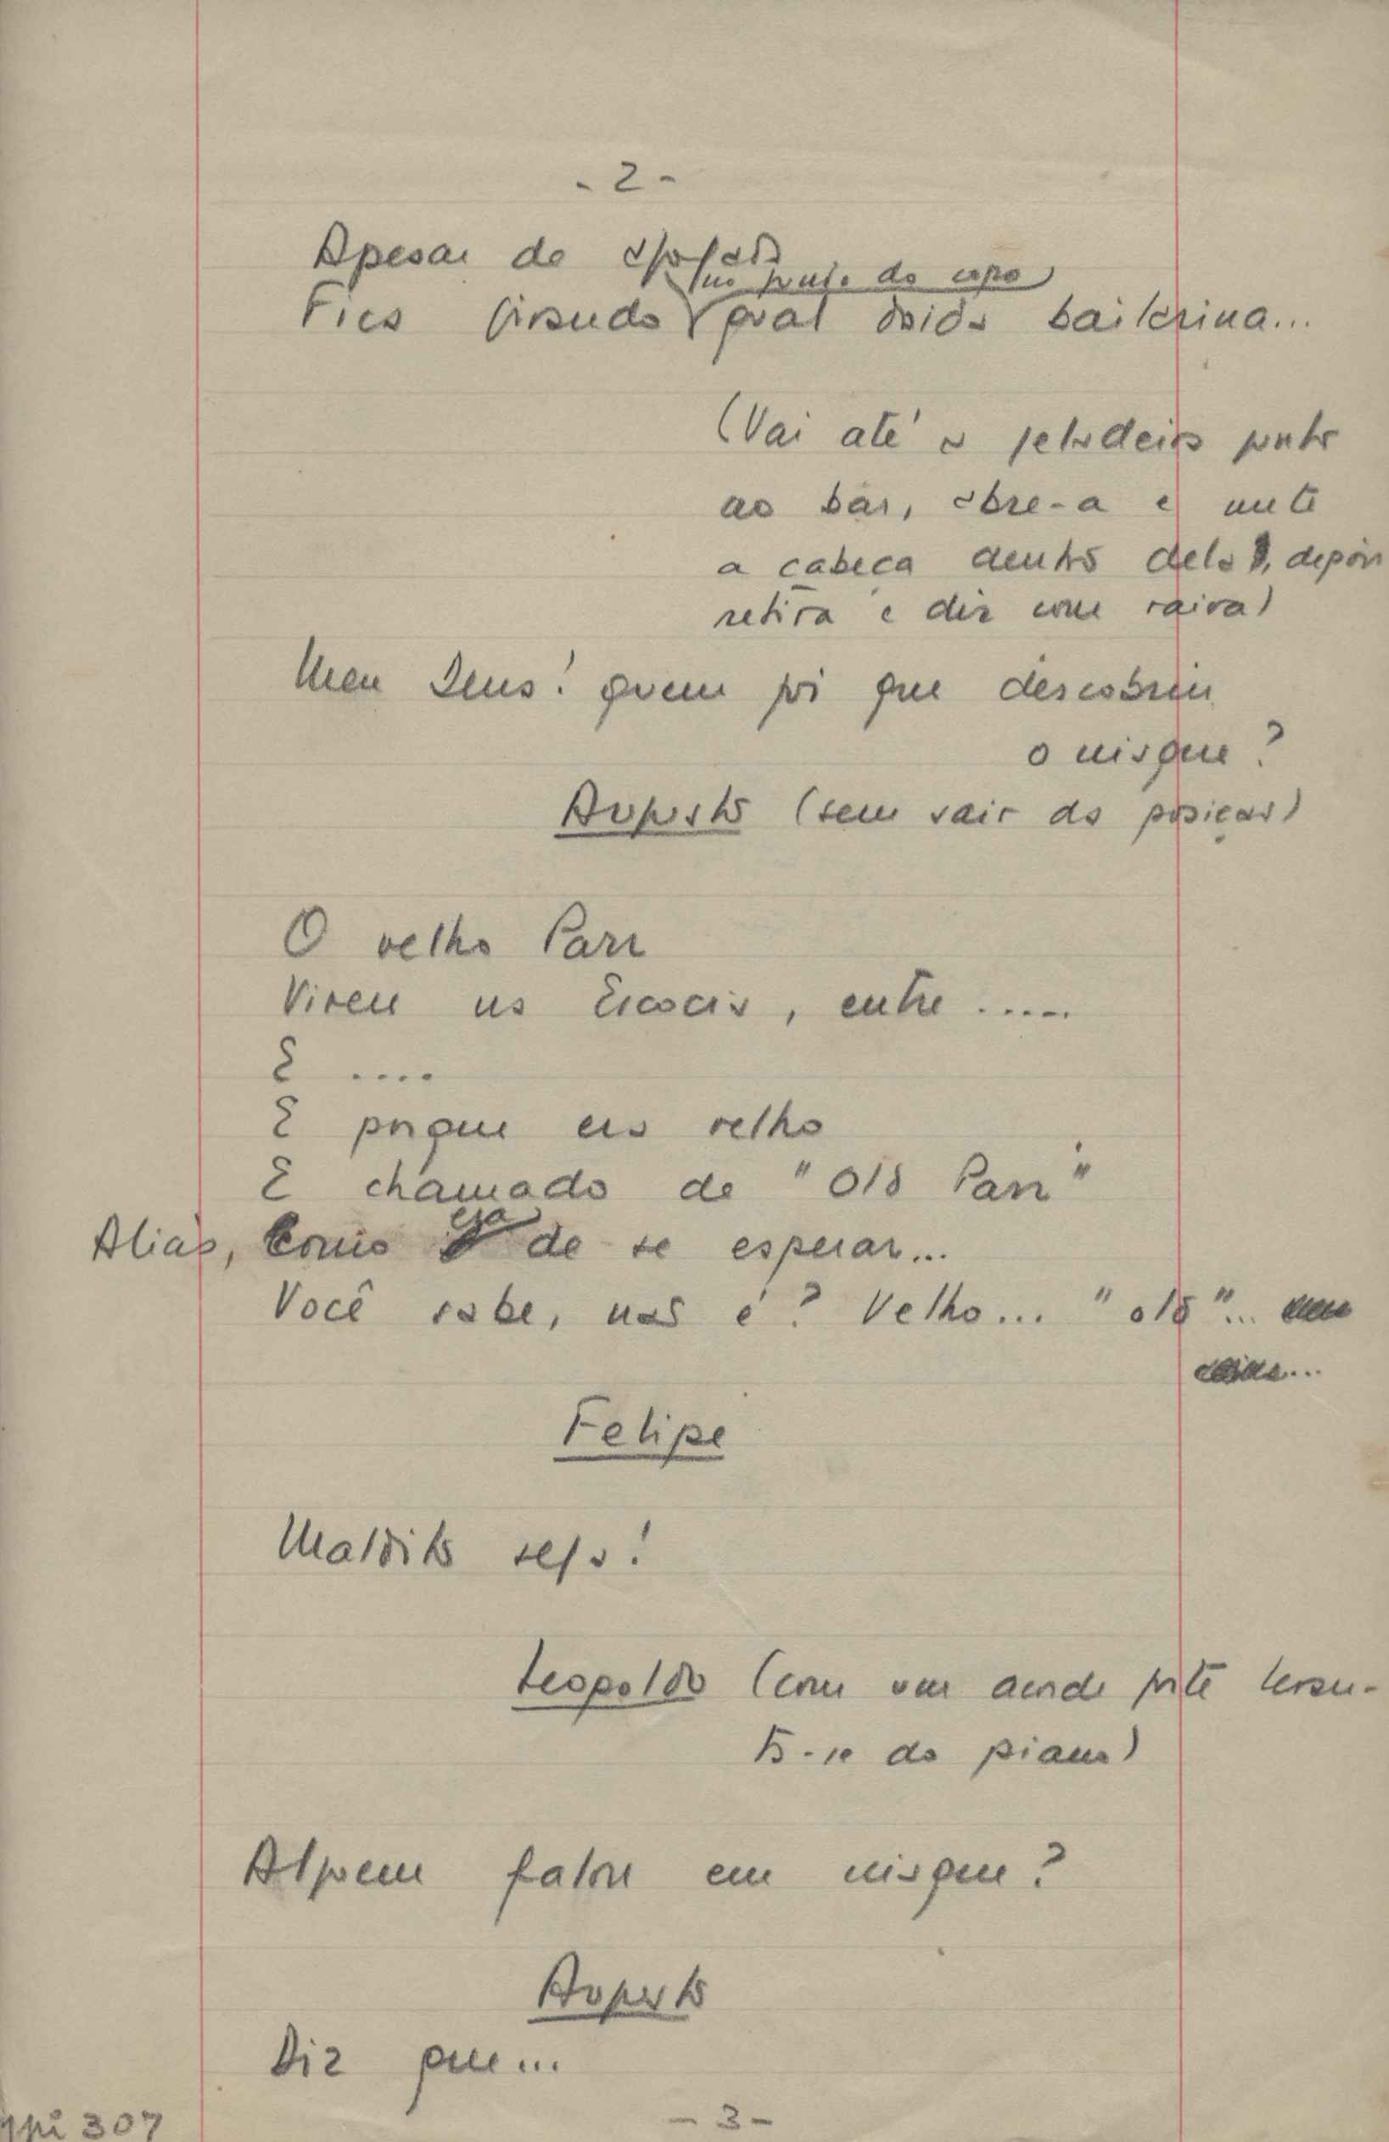 - 2 -
Apesar de afogado
Fica girando no fundo do copo qual doida bailarina...
(Vai até a geladeira junto
ao bar, abre-a e mete
a cabeça dentro dela, depois
retira e diz com raiva)
Meu Deus! quem foi que descobriu
o uisque?
Augusto (sem sair da posição)
O velho Parr
Viveu na Escocia, entre .....
E ....
E porque era velho
E chamado de "Old Parr"
Aliás, Como era de se esperar...
Você sabe, não é? Velho... "old"...
Felipe
Maldito seja!
Leopoldo (com um acorde forte levan-
ta-se do piano)
Alguem falou em uisque?
Augusto
Diz que...
- 3 -
307